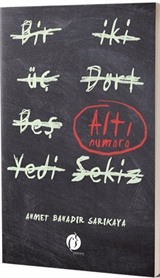 Bir iki
üç Dört
Beş Altı
numara
Yedi Sekiz
AHMET BAHADIR SARIKAYA